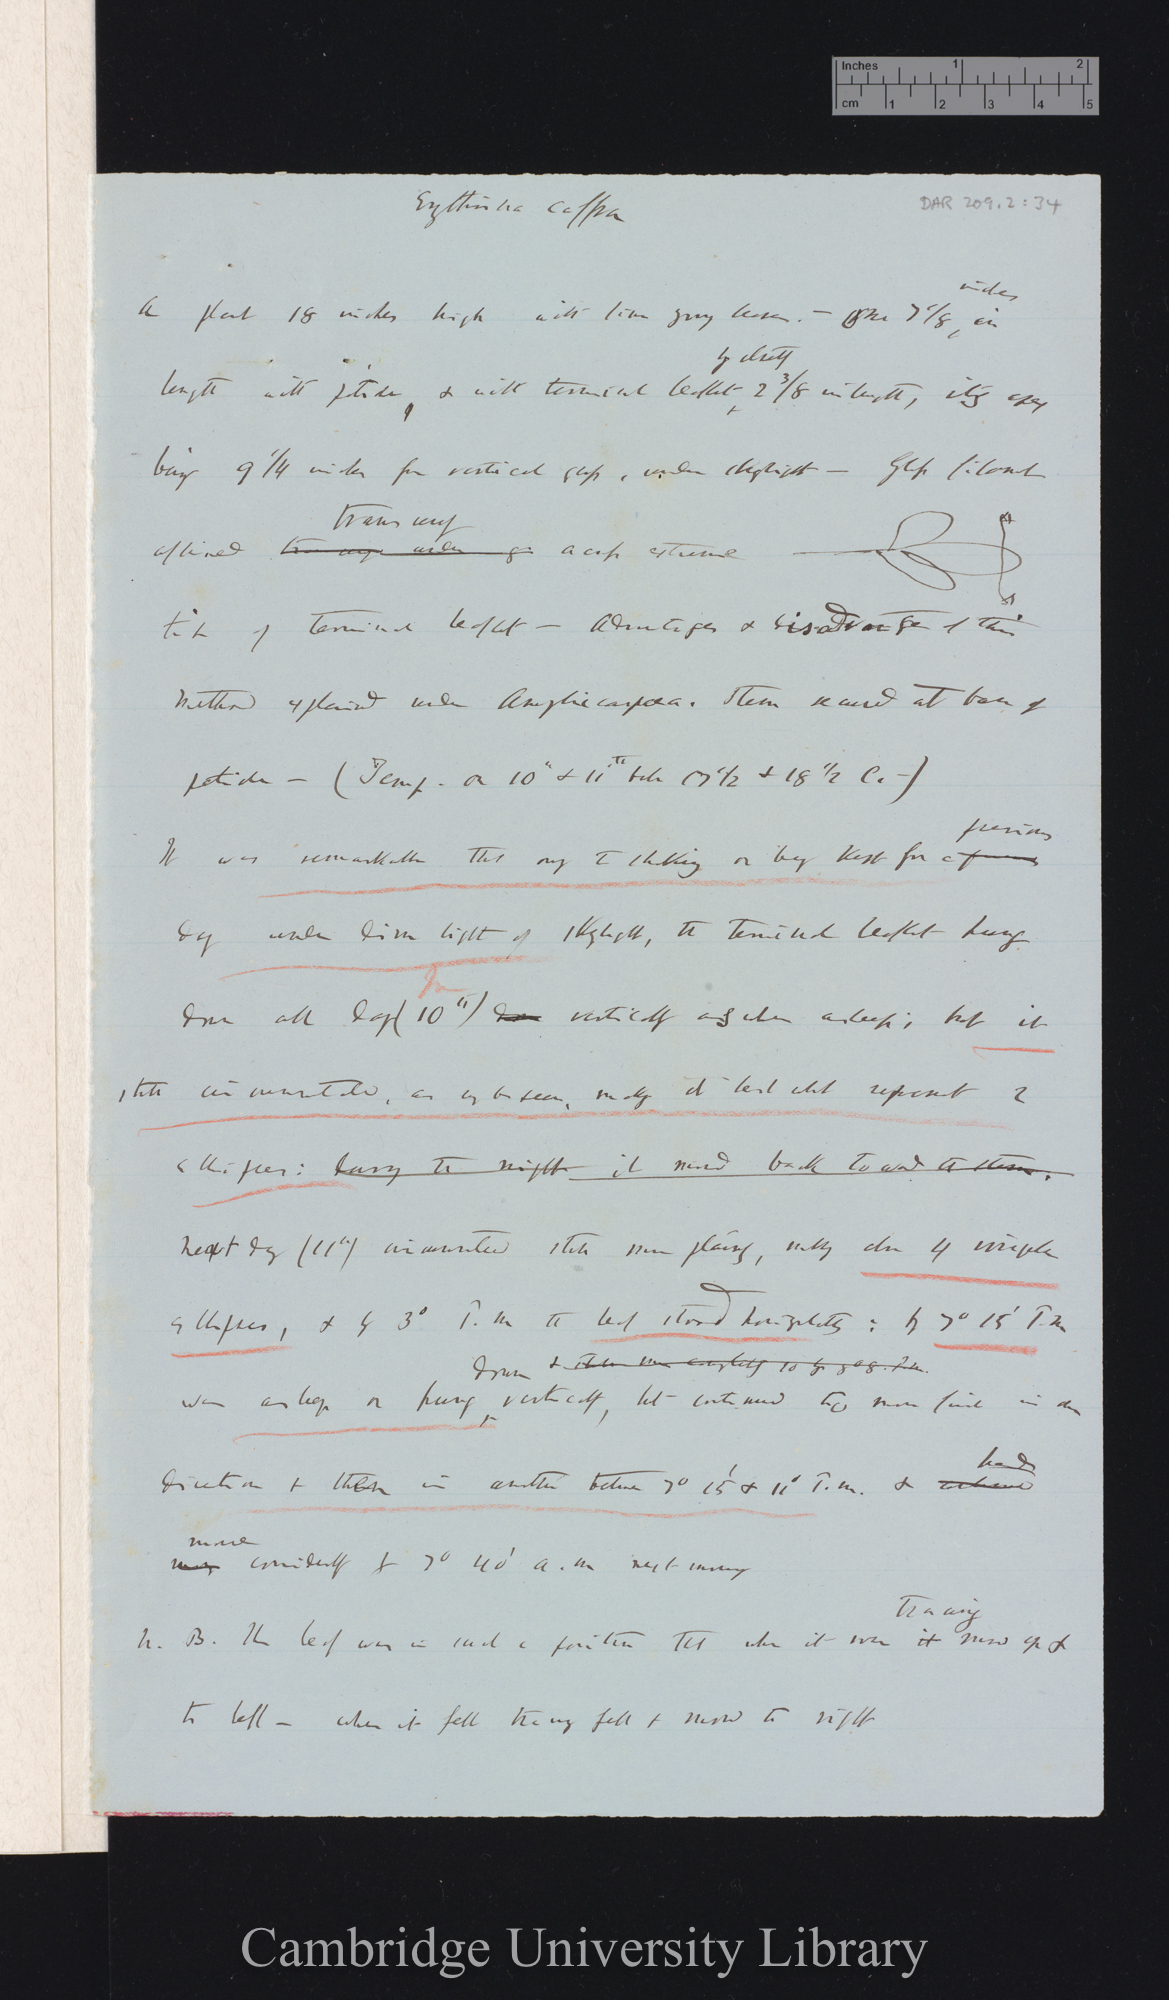 Inches 1 2
cm 1 2 3 4 5
DAR 209.2:34
Erythrina caffra
A plant 18 inches high with two young leaves. — One 7 1/8 inches in
length with petiole, & with terminal leaflet 2 3/8 in length, its apex
being 9 1/4 inches from vertical glass, under skylight — Glass filament
affixed transversely across extreme
tip of terminal leaflet — Advantages & disadvantage of this
method explained under Amphicarpaea. Stem secured at base of
petiole — (Temp. on 10th & 11th 17 1/2 & 18 1/2 C. —)
It was remarkable that owing to shaking or being kept for previous
day under dim light of skylight, the terminal leaflet hung
down all day (10th) vertically as when asleep; but it
still circumnutated, as may be seen, making at least what represent 2
ellipses: during the night it moved back toward the stem.
Next day (11th) circumnutated still more plainly, making above 4 irregular
ellipses, & by 3° P.m the leaf stood horizontally; by 7° 15' P.m
was asleep or hung down vertically, but continued to move first in one
direction & then in another between 7° 15' & 11° P.m. & had
moved considerably by 7° 40' a.m next morning
N. B. The leaf was in such a position that when it rose it tracing moved up &
to left — when it fell tracing fell & moved to right
Cambridge University Library